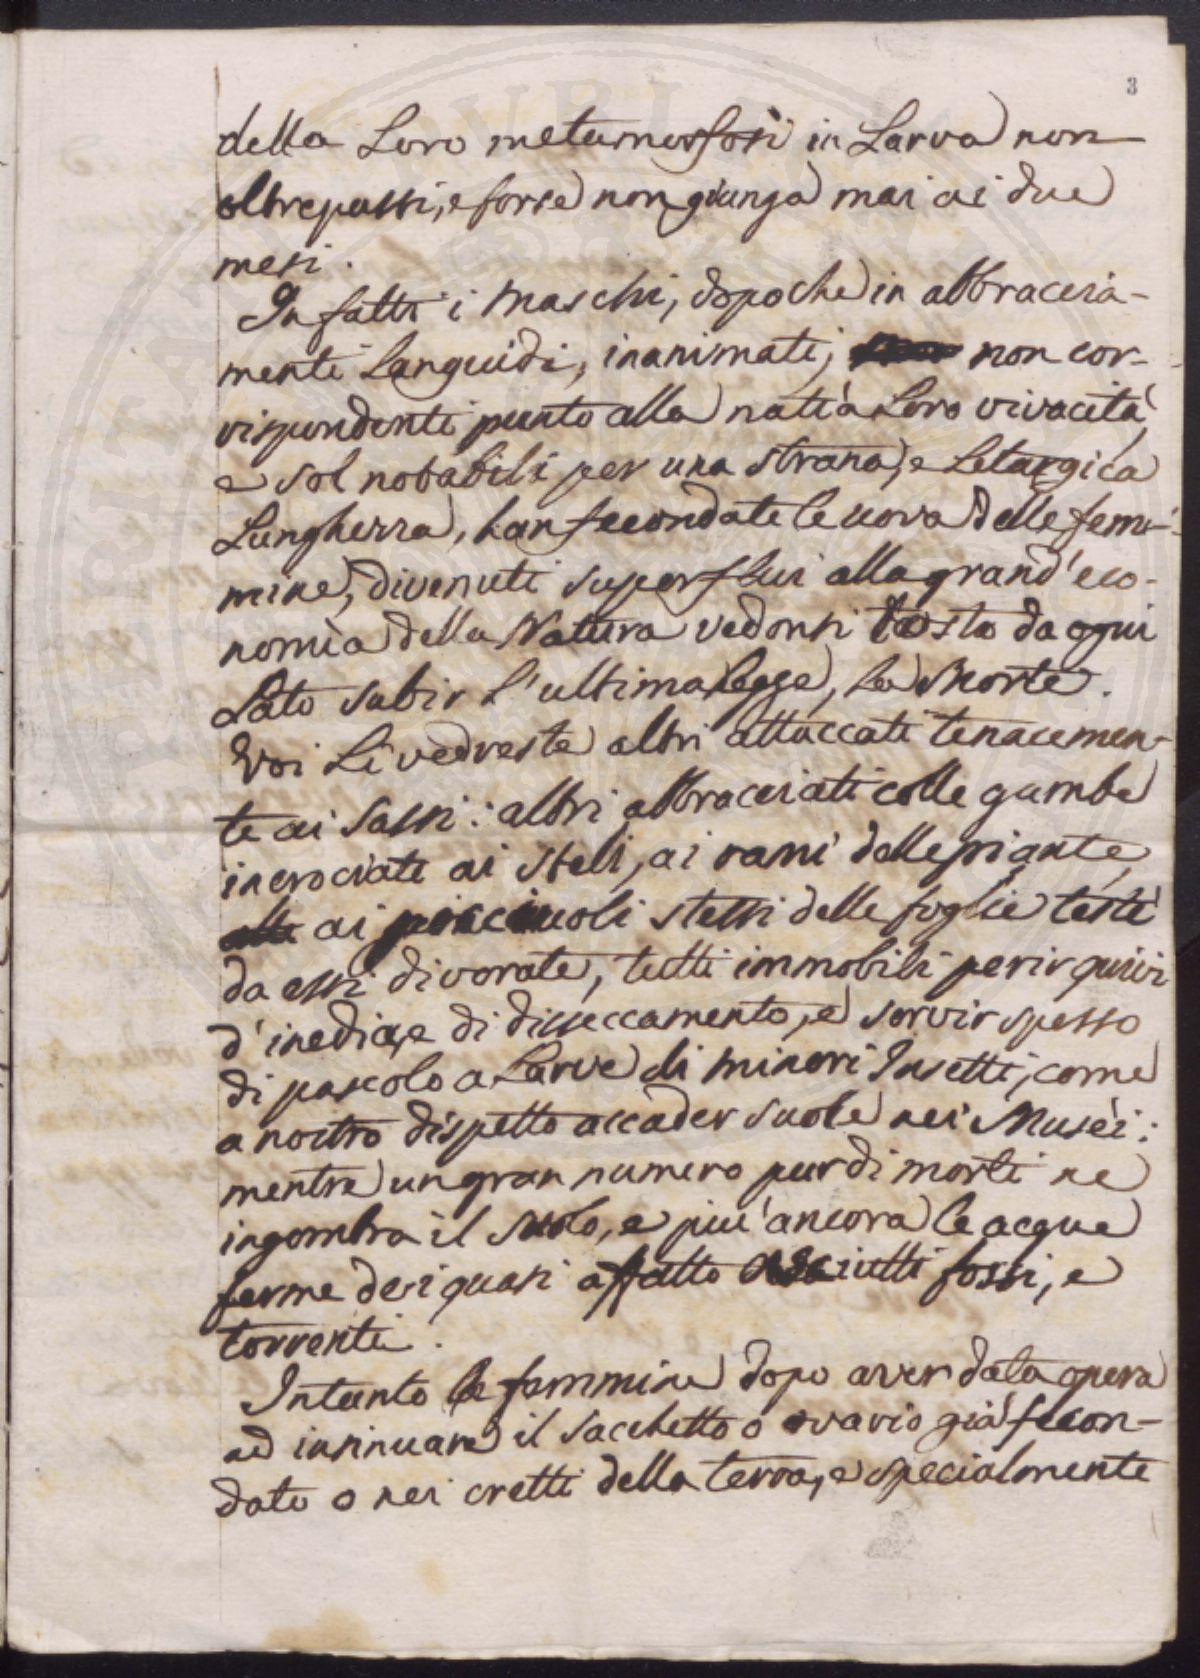 3
della Loro metamorfosi in Larva non
oltrepassi, e forse non giunga mai ai due
mesi.
In fatti i Maschi, dopo che in abbraccia-
menti Languidi, inanimati, non cor-
rispondenti punto alla natìa Loro vivacità
e sol notabili per una strana, e Letargica
Lungherza, han fecondate le uova delle fem-
mine, divenuti superflui alla grand'eco-
nomìa della Natura vedonsi tosto da ogni
Lato subir L'ultima Legge, La Morte.
Voi Li vedreste altri attaccati tenacemen-
te ai Sassi: altri abbracciati colle gambe
incrociate ai steli, ai rami delle piante,
ai picciuoli stessi delle foglie testè
da essi divorate, tutti immobili perir quivi
d'inedia, e di disseccamento, e servir spesso
di pascolo a Larve di minori Insetti, come
a nostro dispetto accader suole nei Musèi:
mentre un gran numero pur di morti ne
ingombra il suolo, e più ancora le acque
ferme dei quasi affatto asciutti fossi, e
torrenti.
Intanto le femmine dopo aver data opera
ad insinuare il sacchetto o ovario già fecon-
dato o nei cretti della terra, e specialmente